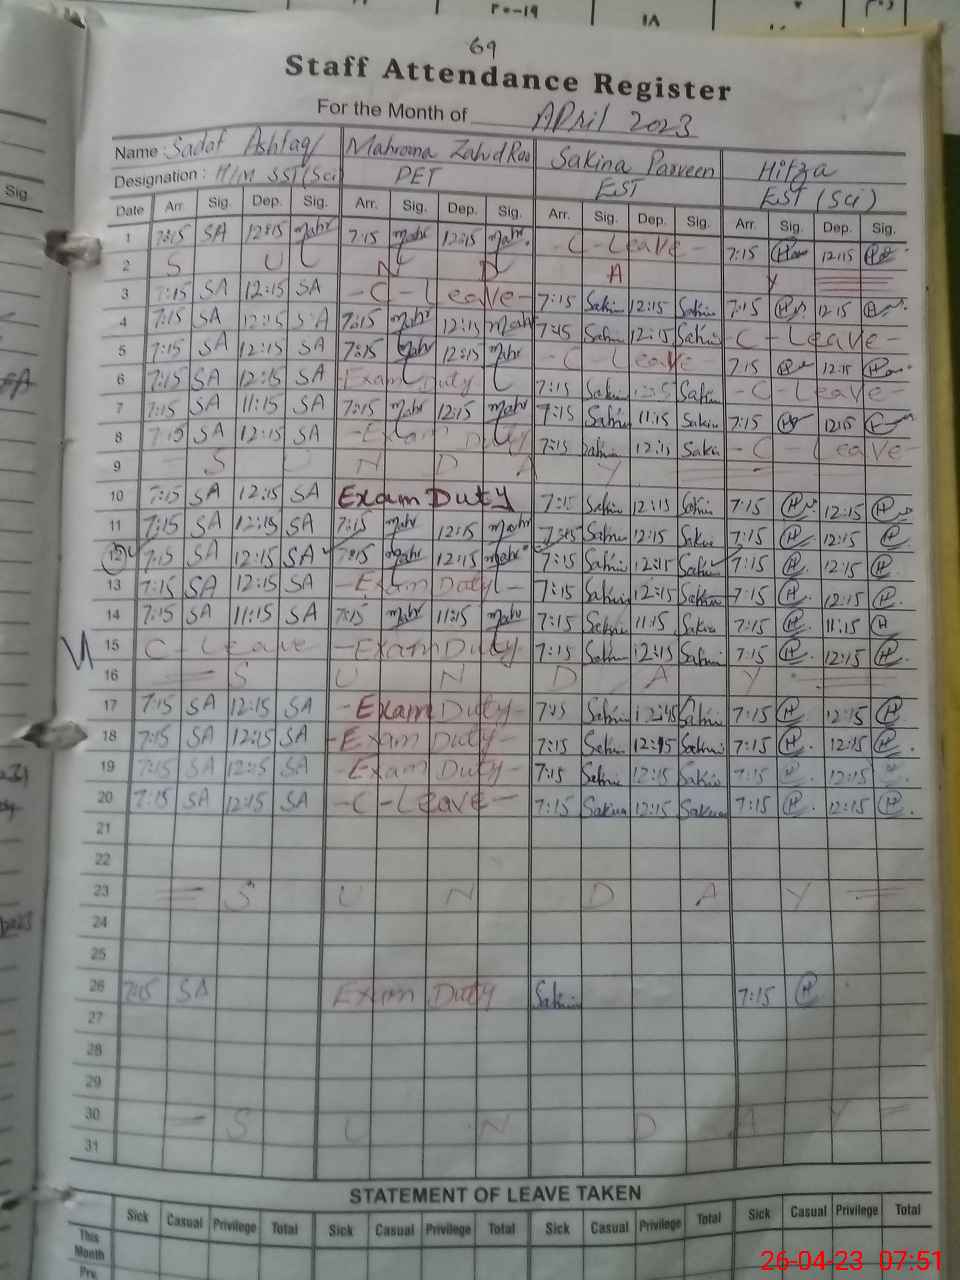 ٢٠-١٩
١٨
69
Staff Attendance Register
For the Month of APril 2023
Name : Sadaf Ashfaq Mahroona Zahid Rao Sakina Parveen Hifza
Designation : H/M SST(Sci) PET EST EST (Sci)
Sig. Date Arr. Sig. Dep. Sig. Arr. Sig. Dep. Sig. Arr. Sig. Dep. Sig. Arr. Sig. Dep. Sig.
1 7:15 SA 12:15 Mahr 7:15 Mahr 12:15 Mahr. -C-Leave- 7:15 H 12:15 H
2 S U N D A Y
3 7:15 SA 12:15 SA -C-Leave- 7:15 Sakin 12:15 Sakin 7:15 H 12:15 H
4 7:15 SA 12:15 SA 7:15 Mahr 12:15 Mahr 7:45 Sakin 12:15 Sakin -C-Leave-
5 7:15 SA 12:15 SA 7:15 Mahr 12:15 Mahr -C Leave 7:15 H 12:15 H
6 7:15 SA 12:15 SA -Exam Duty 7:15 Sakin Sakin -C-Leave-
7 7:15 SA 11:15 SA 7:15 Mahr 12:15 Mahr 7:15 Sakin 11:15 Sakin 7:15 H 12:15 H
8 7:15 SA 12:15 SA -Exam Duty 7:15 Sakin 12:15 Saki -C-Leave-
9 S U N D A Y
10 7:15 SA 12:15 SA Exam Duty 7:15 Sakin 12:15 Sakin 7:15 H 12:15 H
11 7:15 SA 12:15 SA 7:15 Mahr 12:15 Mahr 7:45 Sakin 12:15 Sakin 7:15 H 12:15 H
12 7:15 SA 12:15 SA 7:15 Mahr 12:15 Mahr 7:15 Sakin 12:15 Sakin 7:15 H 12:15 H
13 7:15 SA 12:15 SA -Exam Duty- 7:15 Sakin 12:15 Sakin 7:15 H 12:15 H
14 7:15 SA 11:15 SA 7:15 Mahr 11:15 Mahr 7:15 Sakin 11:15 Sakin 7:15 H 11:15 H
15 C-Leave -Exam Duty 7:15 Sakin 12:15 Sakin 7:15 H 12:15 H
16 S U N D A Y
17 7:15 SA 12:15 SA -Exam Duty- 7:45 Sakin 12:45 Sakin 7:15 H 12:15 H
18 7:15 SA 12:15 SA -Exam Duty- 7:15 Sakin 12:15 Sakin 7:15 H 12:15 H
19 7:15 SA 12:15 SA -Exam Duty- 7:15 Sakin 12:15 Sakin 7:15 H 12:15
20 7:15 SA 12:15 SA -C-Leave- 7:15 Sakina 12:15 Sakina 7:15 H 12:15 H
21
22
23 S U N D A Y
24
25
26 7:15 SA Exam Duty Sakin 7:15 H
27
28
29
30 S U N D A Y
31
STATEMENT OF LEAVE TAKEN
Sick Casual Privilege Total Sick Casual Privilege Total Sick Casual Privilege Total Sick Casual Privilege Total
This Month
Pre.
26-04-23 07:51